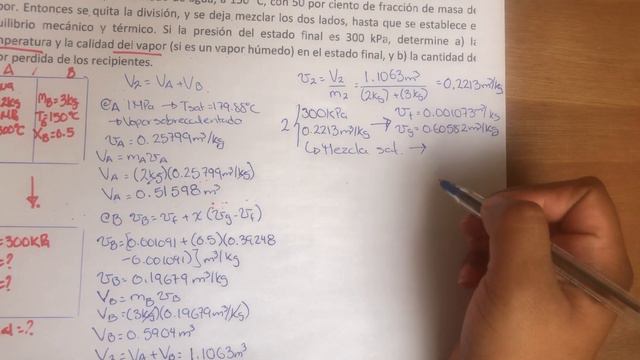 de agua, a 150 °C, con 50 por ciento de fracción de masa de
por. Entonces se quita la división, y se deja mezclar los dos lados, hasta que se establece e
uilibrio mecánico y térmico. Si la presión del estado final es 300 kPa, determine a) la
mperatura y la calidad del vapor (si es un vapor húmedo) en el estado final, y b) la cantidad de
or perdida de los recipientes.
A B
2kg
300°C
mB=3kg
TB=150°C
xB=0.5
=300KPa
=?
=?
=?
V2=VA+VB
@A 1MPa → Tsat=179.88°C
↳Vapor sobrecalentado
vA=0.25799m³/kg
VA=mAvA
VA=(2kg)(0.25799m³/kg)
VA=0.51598m³
@B vB=vf+x(vg-vf)
vB=[0.001091+(0.5)(0.39248
-0.001091)]m³/kg
vB=0.19679m³/kg
VB=mBvB
VB=(3kg)(0.19679m³/kg)
VB=0.5904m³
V2=VA+VB=1.1063m³
v2=V2/m2=1.1063m³/(2kg)+(3kg)=0.2213m³/kg
2 300kPa → vf=0.001073m³/kg
0.2213m³/kg vg=0.60582m³/kg
↳Mezcla sat. →